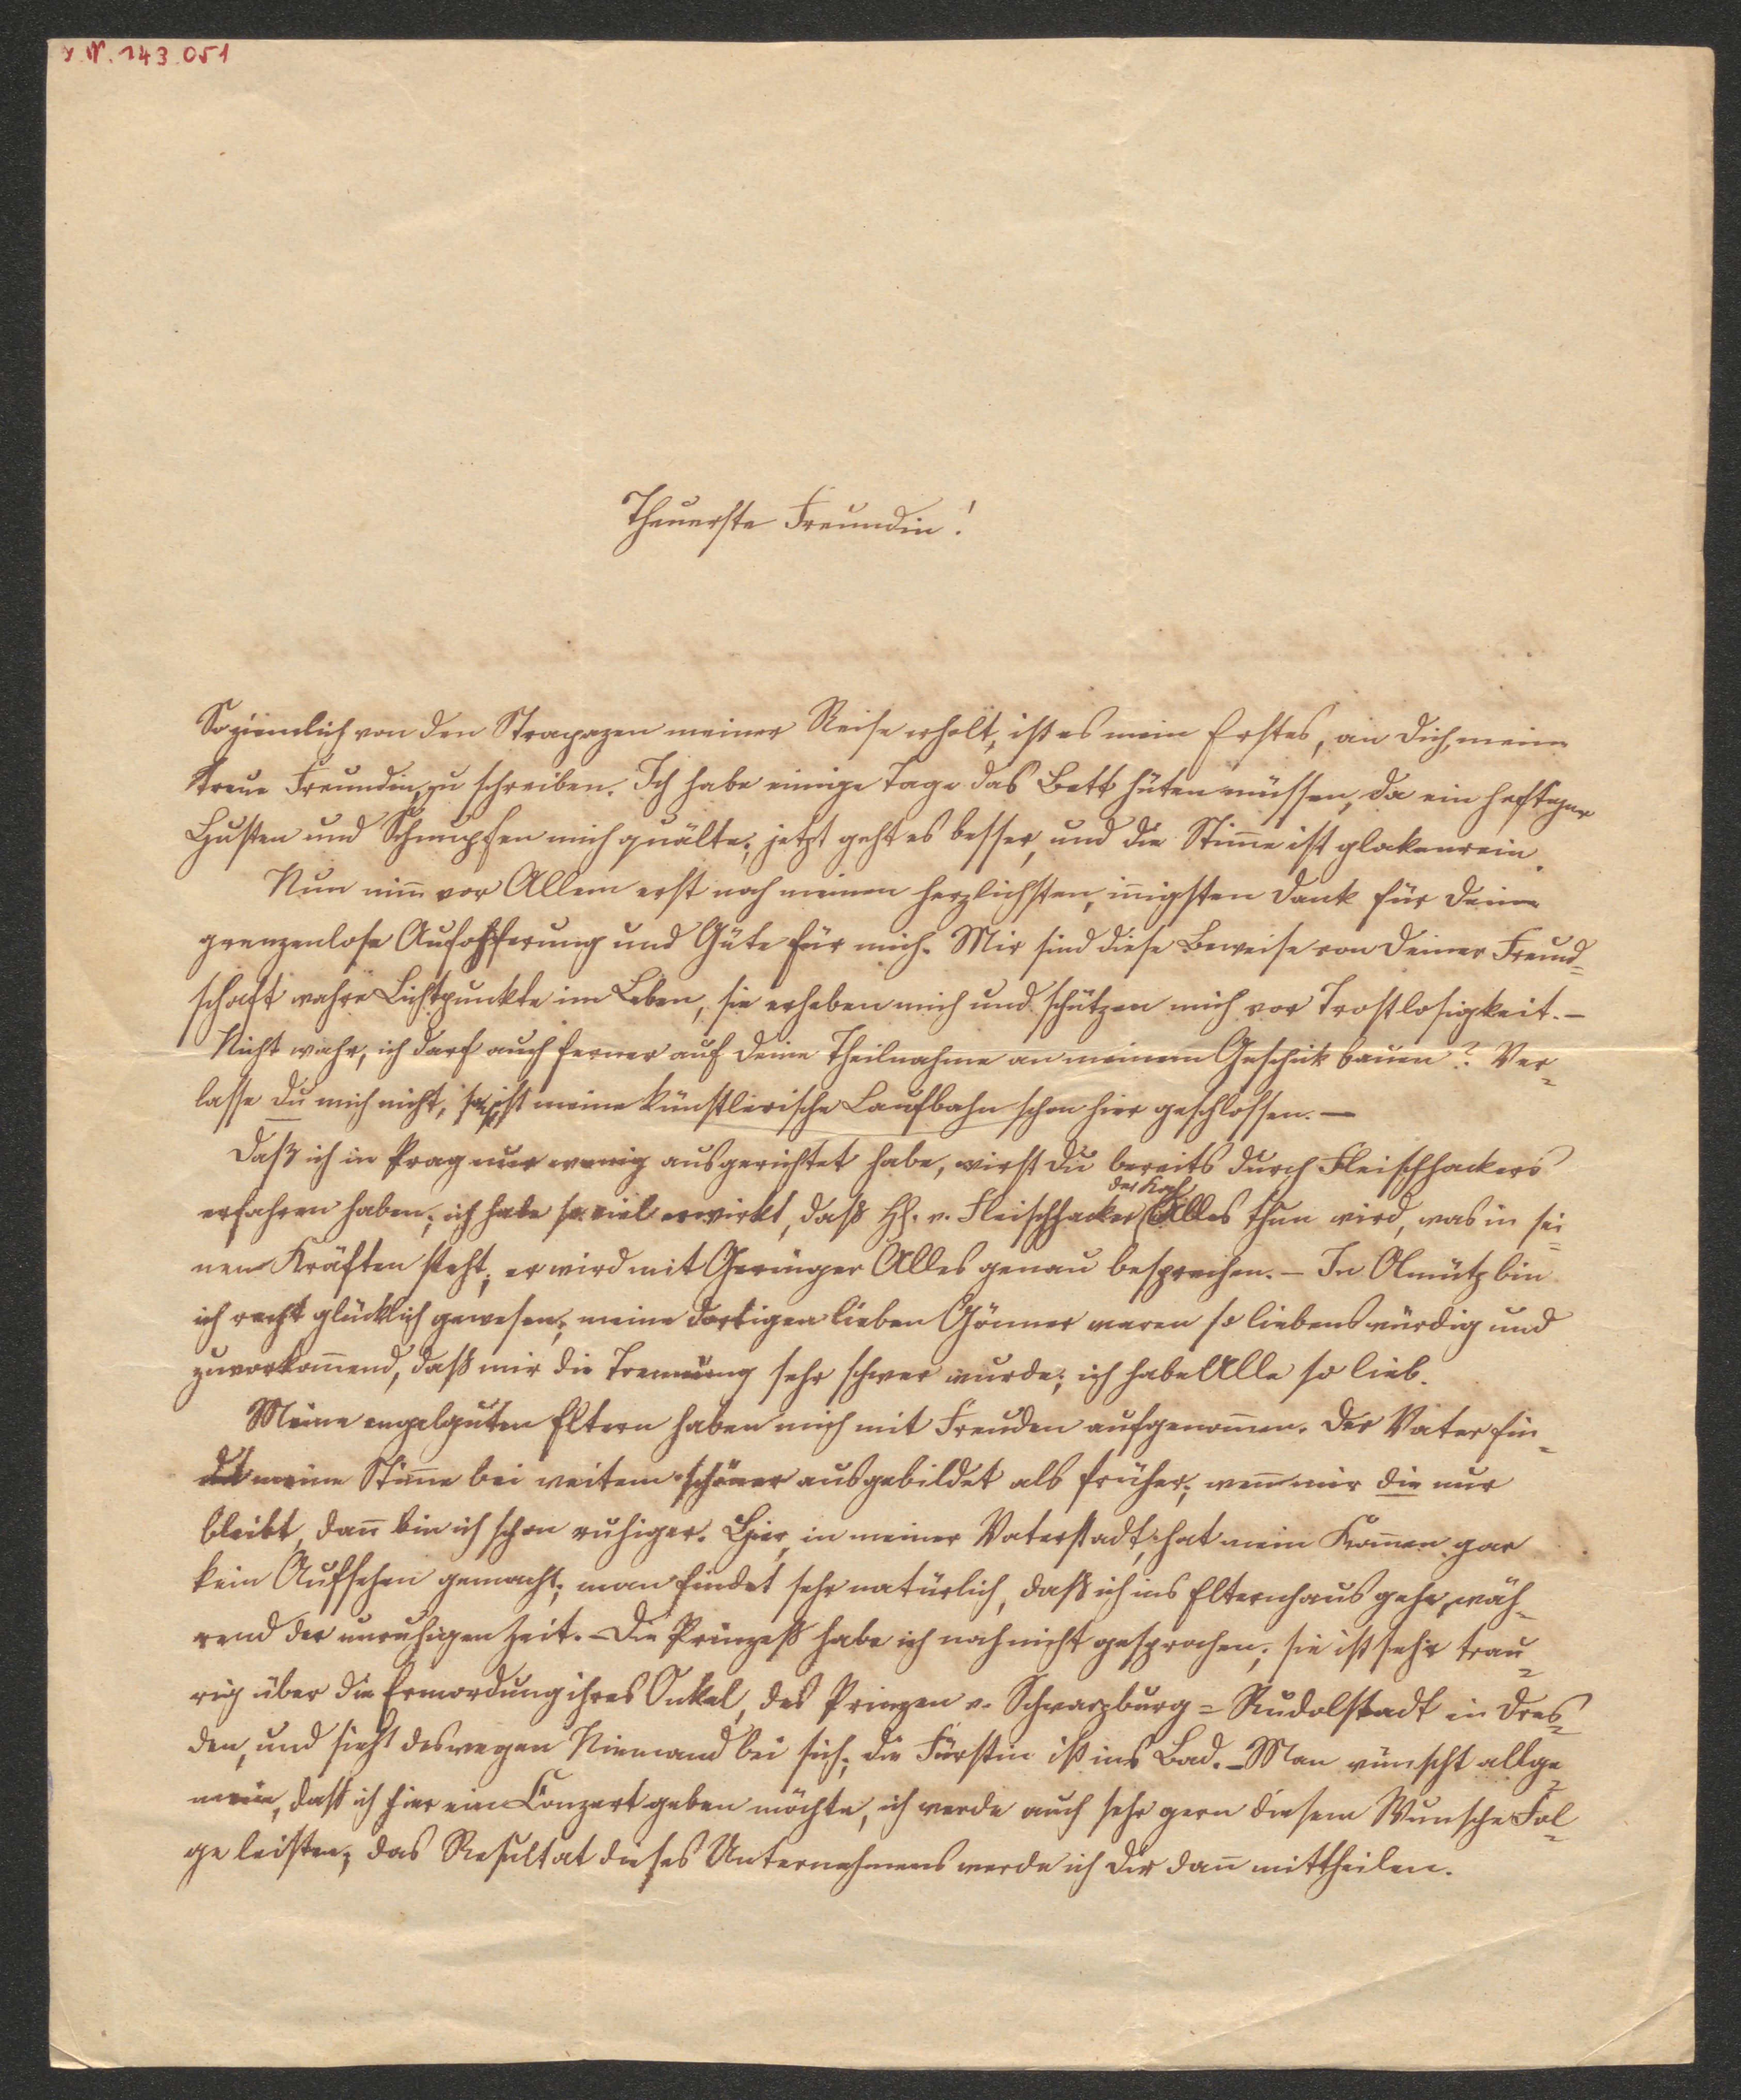 I. N. 143.051
Theuerste Freundin!
So ziemlich von den Strapazen meiner Reise erholt, ist es mein Erstes, an Dich, meine
treue Freundin, zu schreiben. Ich habe einige Tage das Bett hüten müssen, da ein heftiger
Husten und Schnupfen mich quälte; jetzt geht es besser, und die Stim̄e ist glockenrein.
Nun nim̄ vor Allem erst noch meinen herzlichsten, in̄igsten Dank für Deine
grenzenlose Aufopferung und Güte für mich. Mir sind diese Beweise von Deiner Freund=
schaft wahre Lichtpunkte im Leben, sie erheben mich und schützen mich vor Trostlosigkeit. –
Nicht wahr, ich darf auch ferner auf Deine Theilnahme an meinem Geschick bauen? Ver=
lasse Du mich nicht, sonst ist meine künstlerische Laufbahn schon hier geschlossen. —
Daß ich in Prag nur wenig ausgerichtet habe, wirst Du bereits durch Fleischhackers
erfahren haben; ich habe so viel erwirkt, daß H. v. Fleischhacker Alles thun wird, was in sei=
nen Kräften steht; er wird mit Geringer Alles genau besprechen. – In Olmütz bin
ich recht glücklich gewesen; meine dortigen lieben Gönner waren so liebenswürdig und
zuvorkom̄end, daß mir die Trennung sehr schwer wurde; ich habe Alle so lieb.
Meine engelguten Eltern haben mich mit Freuden aufgenom̄en. Der Vater fin=
det meine Stim̄e bei weitem schöner ausgebildet als früher; wen̄ mir die nur
bleibt, dan̄ bin ich schon ruhiger. Hier, in meiner Vaterstadt, hat mein Kom̄en gar
kein Aufsehen gemacht; man findet sehr natürlich, daß ich ins Elternhaus gehe, wäh=
rend der unruhigen Zeit. – Die Prinzeß habe ich noch nicht gesprochen; sie ist sehr trau=
rig über die Ermordung ihres Onkel, des Prinzen v. Schwarzburg=Rudolstadt in Dres=
den, und sieht deswegen Niemand bei sich; die Fürstin ist ins Bad. – Man wünscht allge=
mein, daß ich hier ein Conzert geben möchte, ich werde auch sehr gern diesem Wunsche Fol=
ge leisten; das Resultat dieses Unternehmens werde ich Dir dan̄ mittheilen.